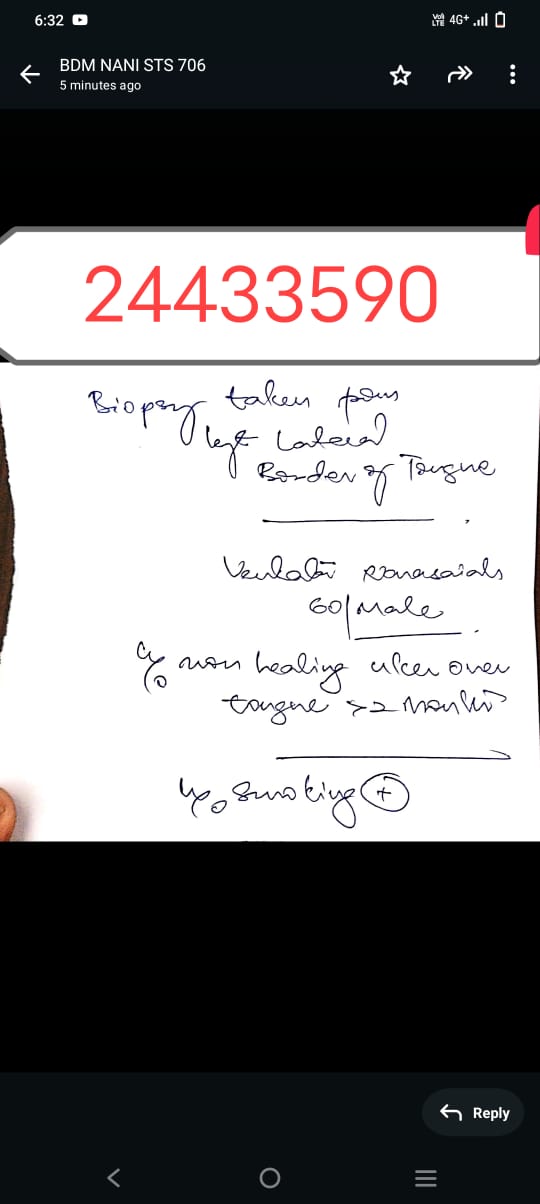 6:32
Vo) LTE 4G+
BDM NANI STS 706
5 minutes ago
24433590
Biopsy taken from
left Lateral
Border of Tongue
60/Male
c/o non healing ulcer over
tongue >2 Months
H/o Smoking +
Reply